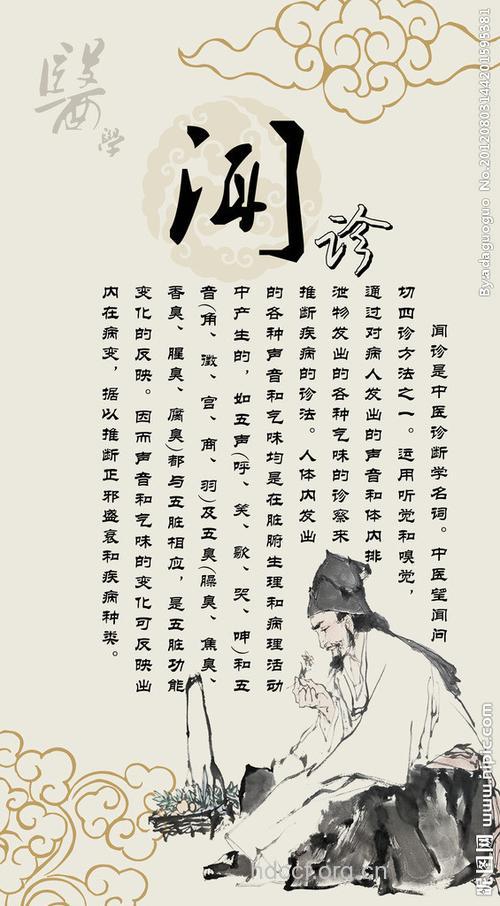 醫學
闻诊
闻诊是中医诊断学名词。中医望闻问
切四诊方法之一。运用听觉和嗅觉，
通过对病人发出的声音和体内排
泄物发出的各种气味的诊察来
推断疾病的诊法。人体内发出
的各种声音和气味均是在脏腑生理和病理活动
中产生的，如五声(呼、笑、歌、哭、呻)和五
音(角、徵、宫、商、羽)及五臭(臊臭、焦臭、
香臭、腥臭、腐臭)都与五脏相应，是五脏功能
变化的反映。因而声音和气味的变化可反映出
内在病变，据以推断正邪盛衰和疾病种类。
By:adaguoguo No.20120803144201595381
昵图网 www.nipic.com